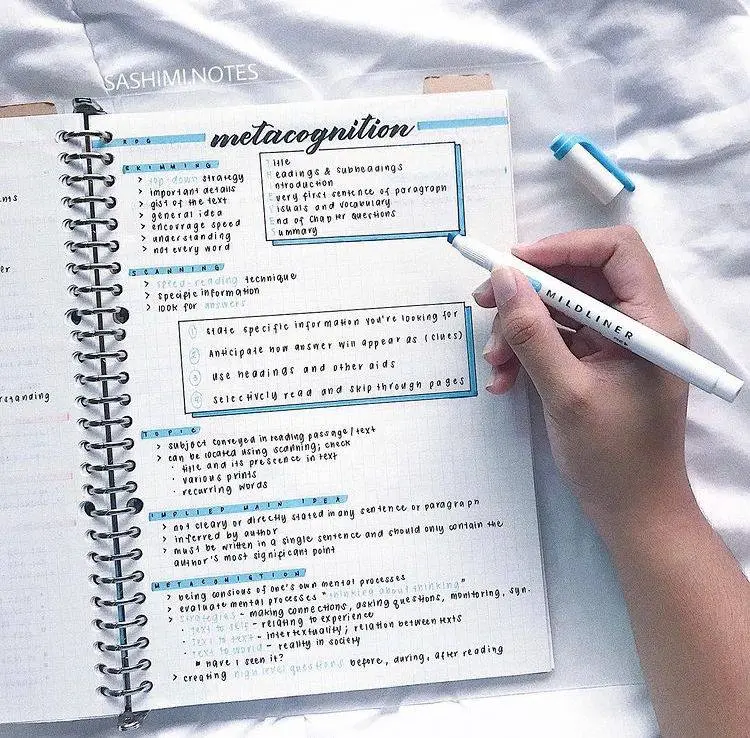 SASHIMI.NOTES
metacognition
RDG
SKIMMING
> top-down strategy
> important details
> gist of the text
> general idea
> encourage speed
> understanding
> not every word
Title
Headings & subheadings
Introduction
Every first sentence of paragraph
Visuals and vocabulary
End of Chapter Questions
Summary
SCANNING
> speed-reading technique
> specific information
> look for answers
1 State specific information you're looking for
2 Anticipate how answer will appear as (clues)
3 Use headings and other aids
4 Selectively read and skip through pages
TOPIC
> subject conveyed in reading passage/text
> can be located using scanning; check
· title and its prescence in text
· various prints
· recurring words
IMPLIED MAIN IDEA
> not cleary or directly stated in any sentence or paragraph
> inferred by author
> must be written in a single sentence and should only contain the
author's most significant point
METACONIGTION
> being consious of one's own mental processes
> evaluate mental processes "thinking about thinking"
> strategies - making connections, asking questions, monitoring, syn.
· text to self - relating to experience
· text to text - intertextuality; relation between texts
· text to world - reality in society
* have I seen it?
> creating high level questions before, during, after reading
MILDLINER